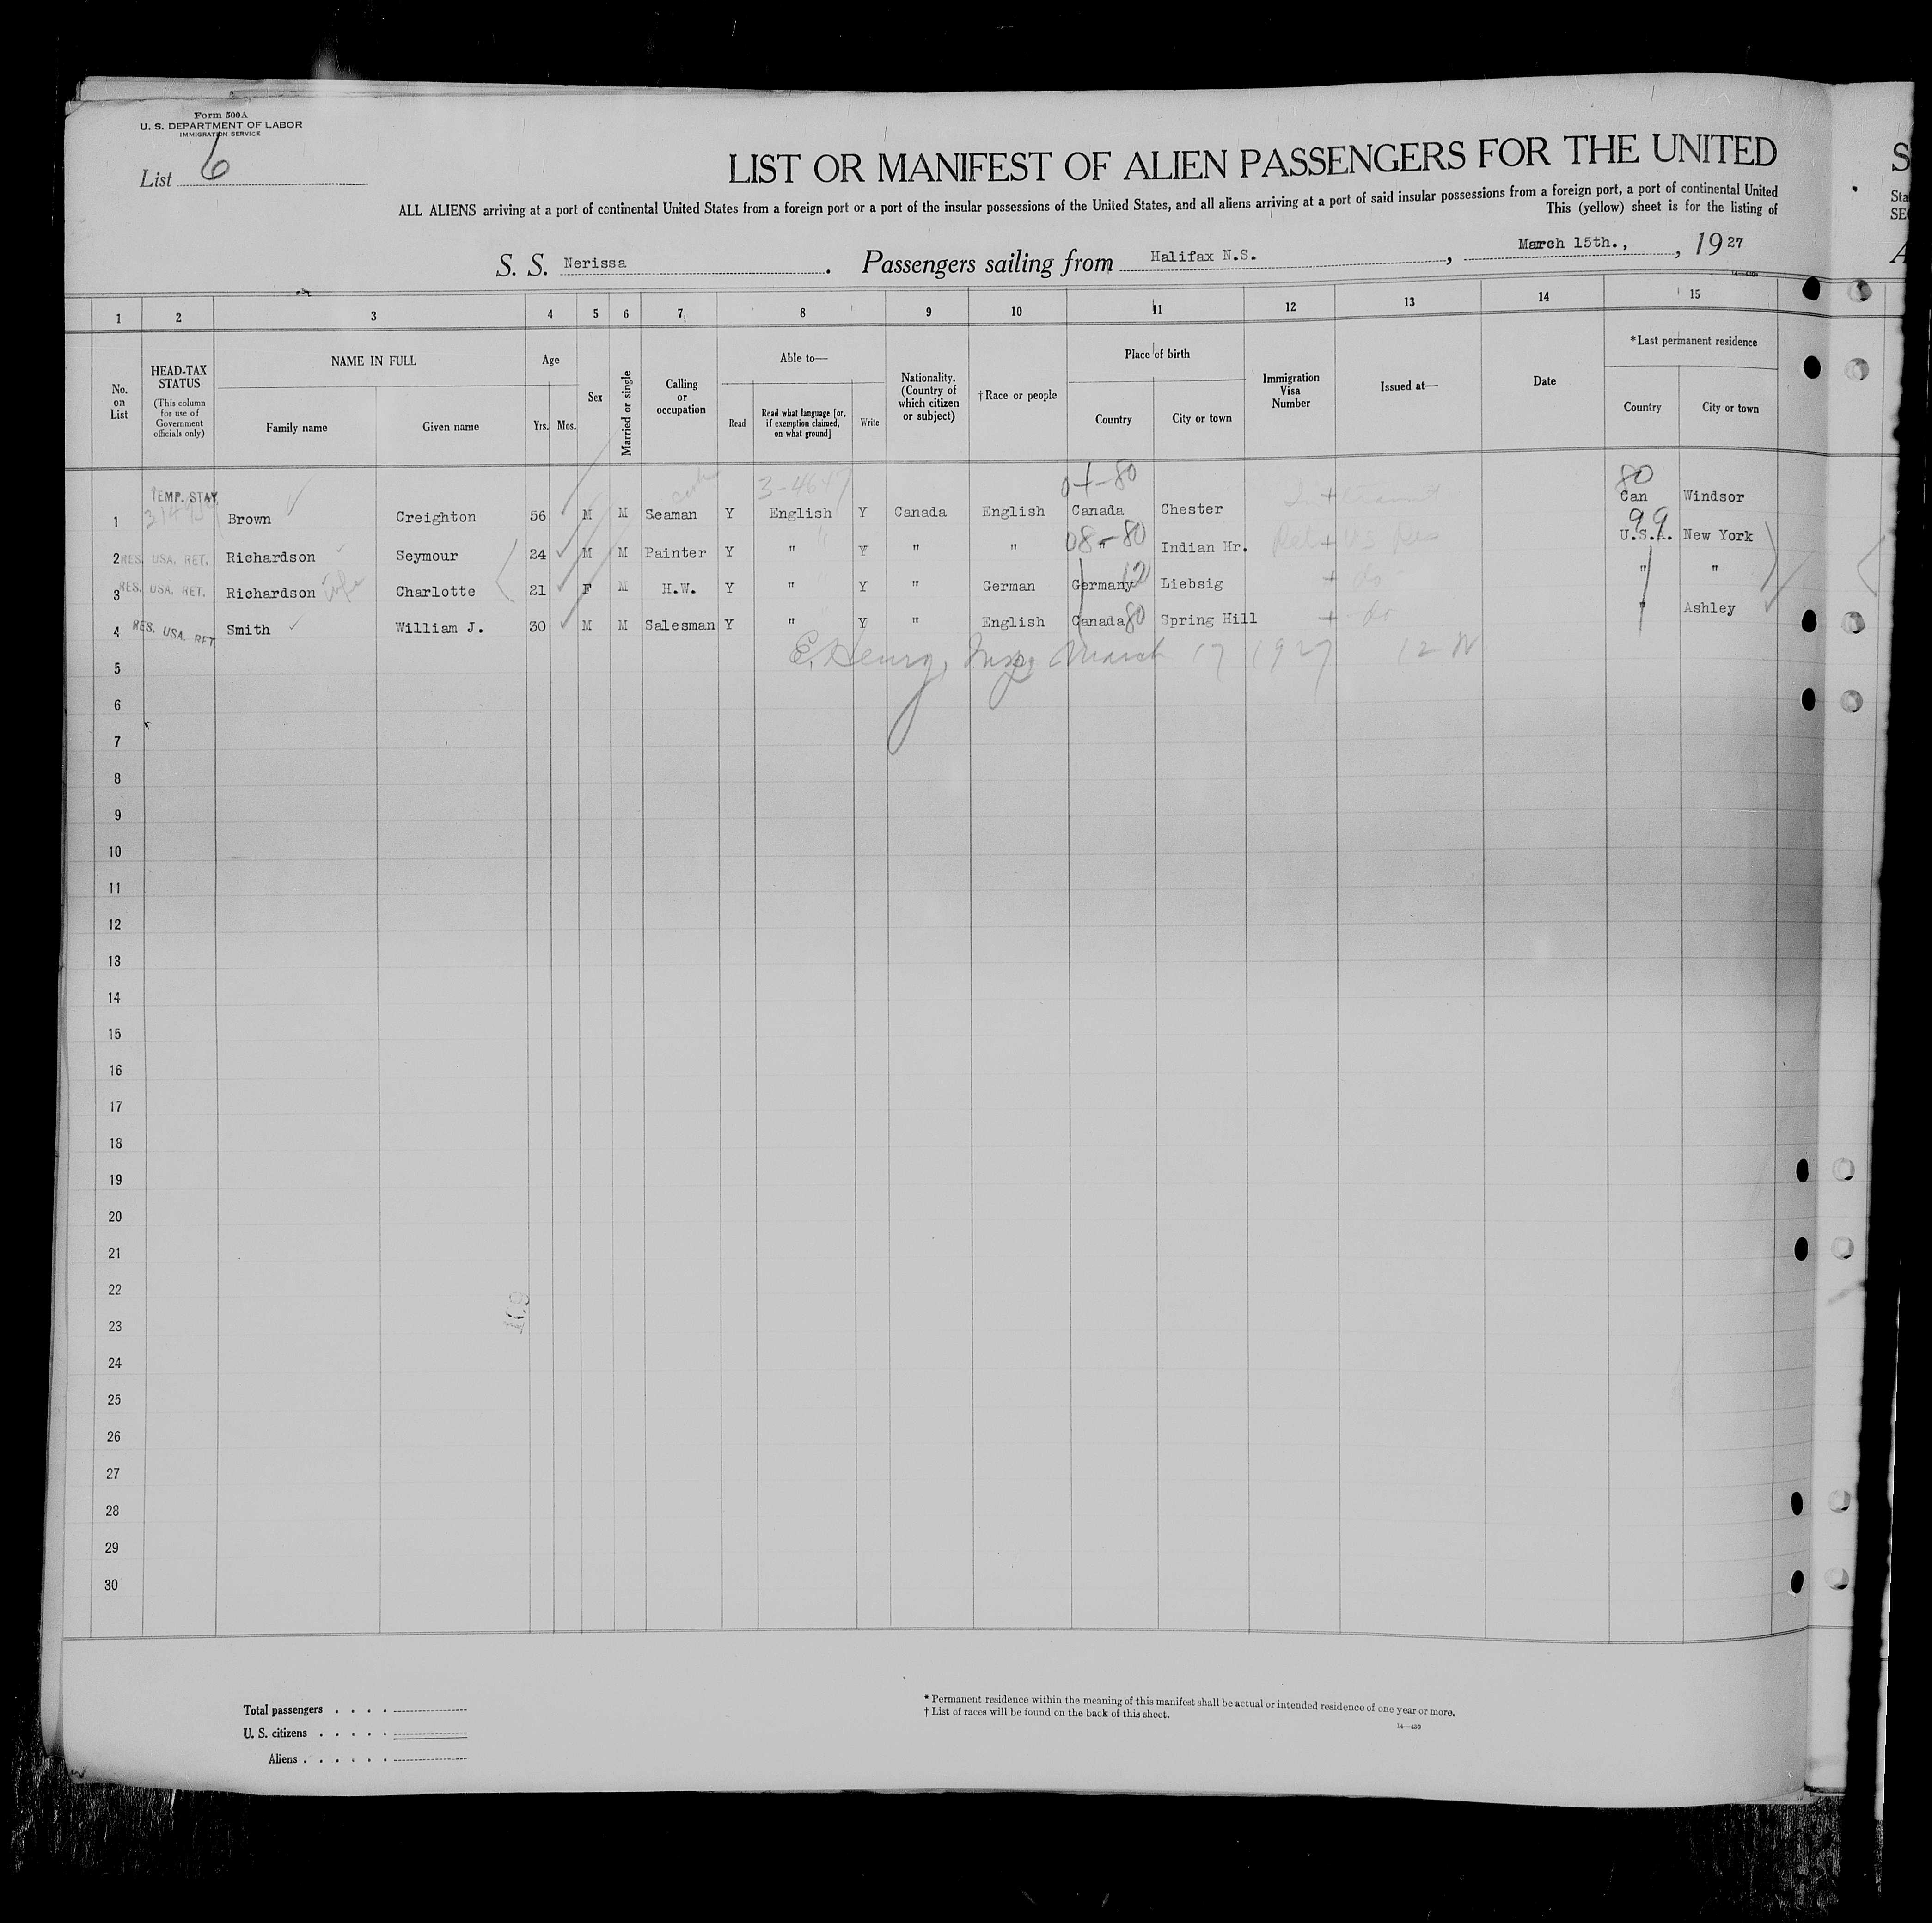 Form 500A
U. S. DEPARTMENT OF LABOR
IMMIGRATION SERVICE
List 6
LIST OR MANIFEST OF ALIEN PASSENGERS FOR THE UNITED
S
ALL ALIENS arriving at a port of continental United States from a foreign port or a port of the insular possessions of the United States, and all aliens arriving at a port of said insular possessions from a foreign port, a port of continental United
Sta
This (yellow) sheet is for the listing of
SEC
S. S. Nerissa. Passengers sailing from Halifax N.S., March 15th., , 1927
A
1 2 3 4 5 6 7 8 9 10 11 12 13 14 15
No. on List
HEAD-TAX STATUS (This column for use of Government officials only)
NAME IN FULL Family name Given name
Age Yrs. Mos.
Sex
Married or single
Calling or occupation
Able to— Read Read what language [or, if exemption claimed, on what ground] Write
Nationality. (Country of which citizen or subject)
† Race or people
Place of birth Country City or town
Immigration Visa Number
Issued at—
Date
* Last permanent residence Country City or town
3-4647 04-80 80
1 TEMP. STAY Brown Creighton 56 M M Seaman Y English Y Canada English Canada Chester In + transit Can Windsor
08-80 99
2 RES. USA. RET. Richardson Seymour 24 M M Painter Y " Y " " " Indian Hr. Ret + US Res U.S.A. New York
3 RES. USA. RET. Richardson Wife Charlotte 21 F M H.W. Y " Y " German Germany 12 Liebsig + do " "
4 RES. USA. RET Smith William J. 30 M M Salesman Y " Y " English Canada 80 Spring Hill + do " Ashley
E. Henry, Insp. March 17 1927 12 N
5
6
7
8
9
10
11
12
13
14
15
16
17
18
19
20
21
22
23
24
25
26
27
28
29
30
Total passengers . . . .
U. S. citizens . . . . .
Aliens . . . . . .
* Permanent residence within the meaning of this manifest shall be actual or intended residence of one year or more.
† List of races will be found on the back of this sheet.
14—430